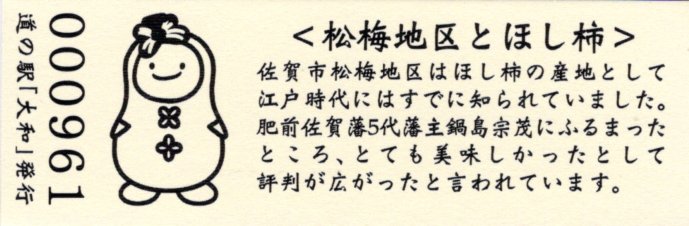 000961
道の駅「大和」発行
<松梅地区とほし柿>
佐賀市松梅地区はほし柿の産地として
江戸時代にはすでに知られていました。
肥前佐賀藩5代藩主鍋島宗茂にふるまった
ところ、とても美味しかったとして
評判が広がったと言われています。